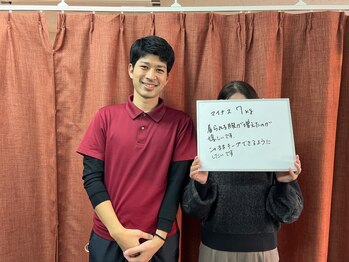 マイナス 7kg
着られる服が増えたのが
嬉しいです。
このままキープできるように
したいです